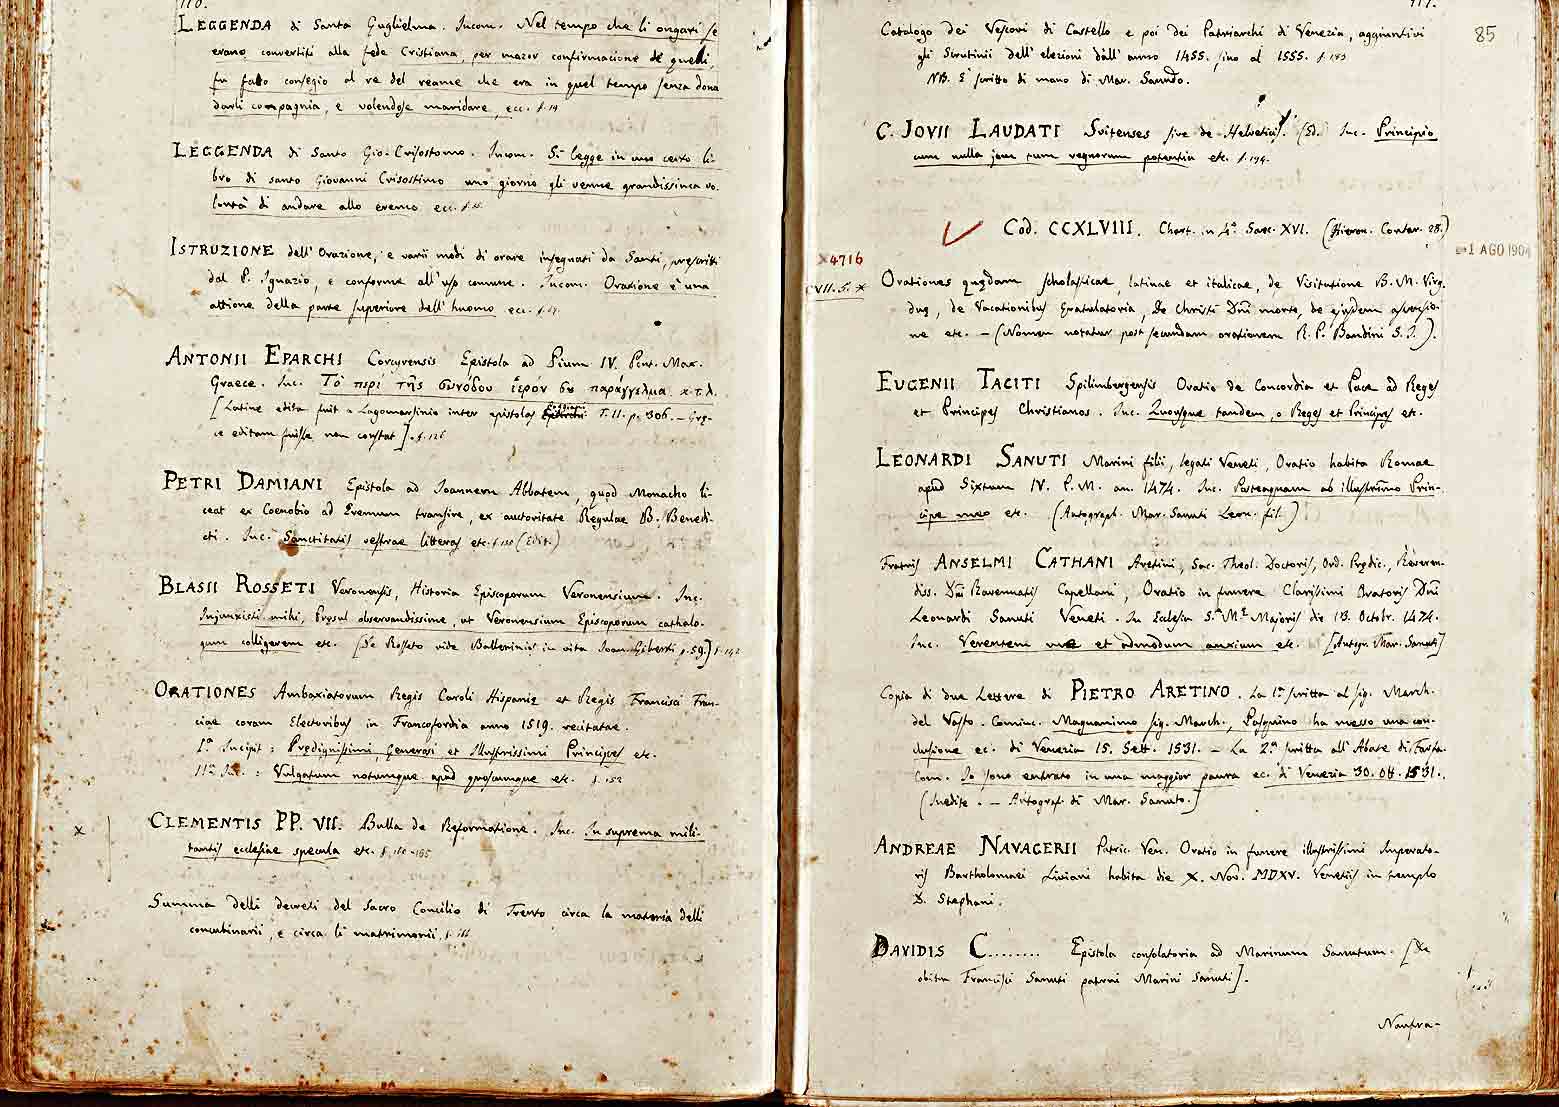 116.
LEGGENDA di Santa Guglielma. Incom. Nel tempo che li ongari se
erano convertiti alla fede Cristiana, per mazor confirmacione de quelli,
fu fatto consegio al re del reame che era in quel tempo senza dona
darli compagnia, e volendose maridare, ecc. f. 19
LEGGENDA di Santo Gio. Crisostomo. Incom. Si legge in uno certo li-
bro di santo Giovanni Crisostimo uno giorno gli venne grandissima vo-
lontà di andare allo eremo ecc.
ISTRUZIONE dell'Orazione, e varii modi di orare insegnati da Santi, prescritti
dal P. Ignazio, e conforme all'uso comune. Incom. Orazione è una
attione della parte superiore dell'huomo ecc.
ANTONII EPARCHI Corcyrensis Epistola ad Pium IV. Pont. Max.
Graece. Inc. Τὸ περὶ τῆς συνόδου ἱερόν σου παράγγελμα κ.τ.λ.
[Latine edita fuit a Lagomarsinio inter epistolas Pogiani T. II. p. 306. — Gręce
ce editam fuisse non constat]. f. 126
PETRI DAMIANI Epistola ad Joannem Abbatem, quod Monacho li-
ceat ex Coenobio ad Eremum transire, ex auctoritate Regulae B. Benedi-
cti. Inc. Sanctitatis vestrae litteras etc. (Edit.)
BLASII ROSSETI Veronensis, Historia Episcoporum Veronensium. Inc.
Injunxisti mihi, Pręsul observandissime, ut Veronensium Episcoporum cathalo-
gum colligerem etc. [De Rosseto vide Ballerinios in vita Joan. Giberti p. 59.] f. 142
ORATIONES Ambaxiatorum Regis Caroli Hispanię et Regis Francisci Fran-
ciae coram Electoribus in Francofordia anno 1519. recitatae.
I.a Incipit: Prędignissimi, Generosi et Illustrissimi Principes etc.
II.a Inc.: Vulgatum notumque apud quoscumque etc. f. 152
x CLEMENTIS PP. VII. Bulla de Reformatione. Inc. In suprema mili-
tantis ecclesiae specula etc. f. 160-165
Summa delli decreti del Sacro Concilio di Trento circa la materia delli
concubinarii, e circa li matrimonii. f. 166
117.
85
Catalogo dei Vescovi di Castello e poi dei Patriarchi di Venezia, aggiuntivi
gli Scrutinii dell'elezioni dall'anno 1455. sino al 1555. f. 183
NB. È scritto di mano di Mar. Sanudo.
C. JOVII LAUDATI Suitenses sive de Helvetiis. Inc. Principio
cum nulla jam tum regnorum potentia etc. f. 194.
Cod. CCXLVIII. Chart. in 4.o Saec. XVI. (Hieron. Contar. 28.)
1 AGO 1904
x4716
Orationes quędam scholasticae, latinae et italicae, de Visitatione B. M. Virg.
duę, de Vacationibus Gratulatoria, De Christi Dñi morte, de ejusdem ascensio-
ne etc. — (Nomen notatur post secundam orationem R. P. Bandini S. J.).
EUGENII TACITI Spilimbergensis Oratio de Concordia et Pace ad Reges
et Principes Christianos. Inc. Quousque tandem, o Reges et Principes etc.
LEONARDI SANUTI Marini filii, legati Veneti, Oratio habita Romae
apud Sixtum IV. P. M. an. 1474. Inc. Posteaquam ab illustrissimo Prin-
cipe meo etc. (Autograph. Mar. Sanuti Leon. fil.)
Fratris ANSELMI CATHANI Aretini, Sac. Theol. Doctoris, Ord. Prędic., Reveren-
diss. Dñi Ravennatis Capellani, Oratio in funere Clarissimi Oratoris Dñi
Leonardi Sanuti Veneti. In Ecclesia S.ę M.ę Majoris die 13. Octobr. 1474.
Inc. Verentem me et admodum anxium etc. [Autogr. Mar. Sanuti]
Copia di due Lettere di PIETRO ARETINO. La 1.a scritta al sig. March.
del Vasto. Cominc. Magnanimo sig. March., Pasquino ha messo una con-
clusione ec. di Venezia 15. Sett. 1531. — La 2.a scritta all'Abate di Farfa.
Com. Io sono entrato in una maggior paura ec. di Venezia 30. Ott. 1531.
(Inedite. — Autograf. di Mar. Sanuto.]
ANDREAE NAVAGERII Patric. Ven. Oratio in funere illustrissimi Imperato-
ris Bartholomaei Liviani habita die X. Nov. MDXV. Venetiis in templo
D. Stephani.
DAVIDIS C........ Epistola consolatoria ad Marinum Sanutum. [De
obitu Francisci Sanuti patrui Marini Sanuti].
Naufra-